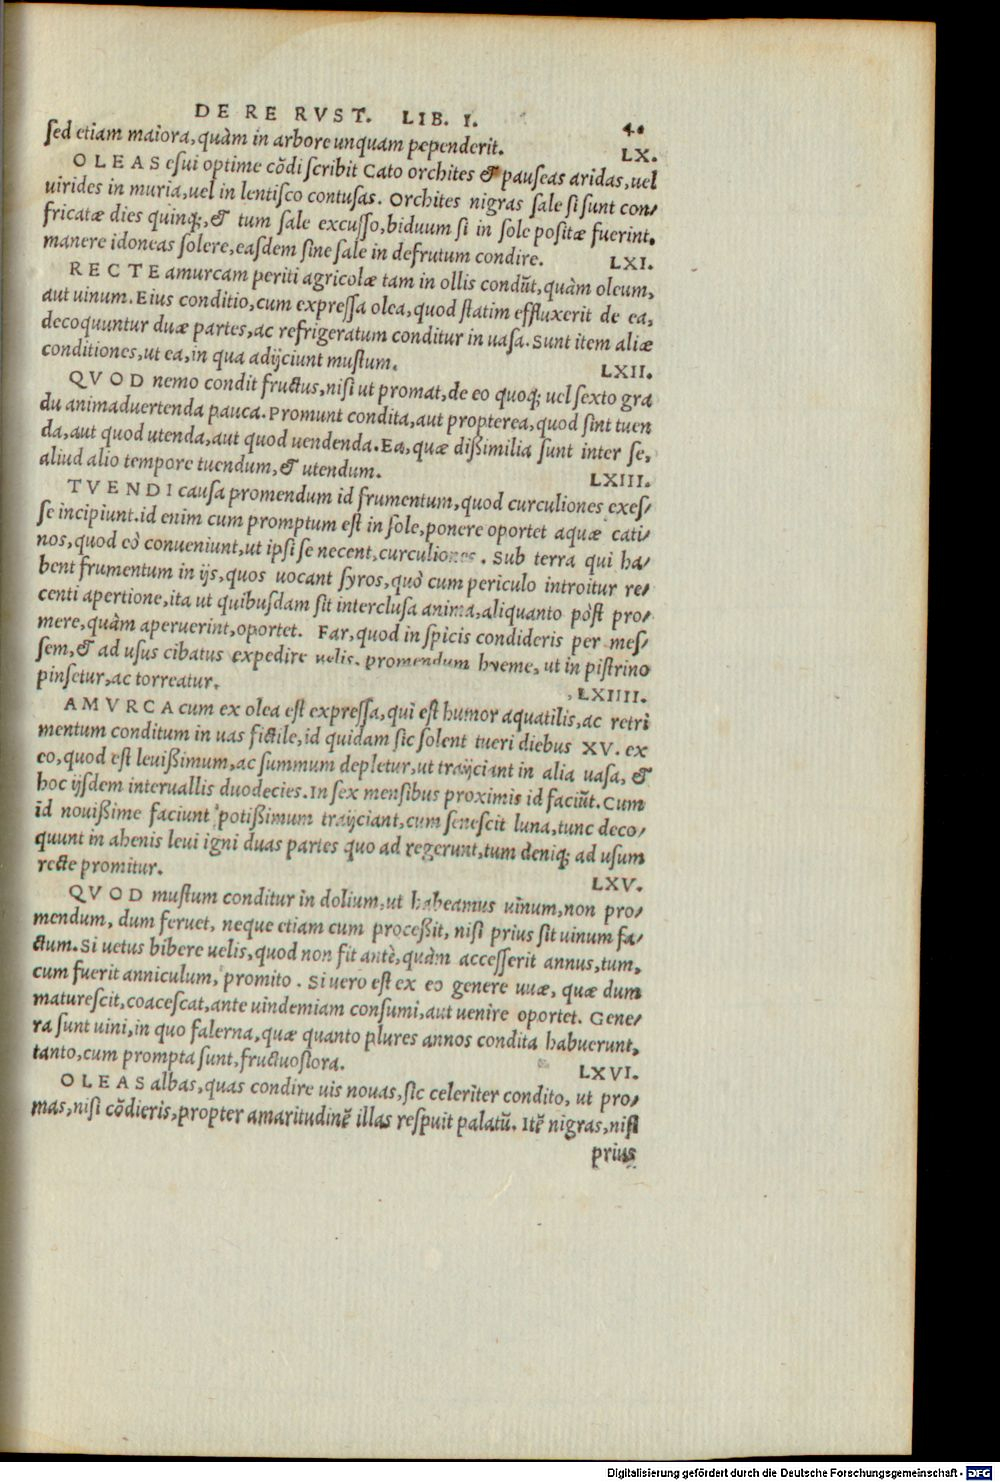 DE RE RVST. LIB. I. 40
ſed etiam maiora, quàm in arbore unquam pependerit. LX.
OLEAS eſui optime cōdi ſcribit Cato orchites & pauſeas aridas, uel
uirides in muria, uel in lentiſco contuſas. Orchites nigras ſale ſi ſunt con/
fricatæ dies quinq;, & tum ſale excuſſo, biduum ſi in ſole poſitæ fuerint,
manere idoneas ſolere, eaſdem ſine ſale in defrutum condire. LXI.
RECTE amurcam periti agricolæ tam in ollis condūt, quàm oleum,
aut uinum. Eius conditio, cum expreſſa olea, quod ſtatim effluxerit de ea,
decoquuntur duæ partes, ac refrigeratum conditur in uaſa. Sunt item aliæ
conditiones, ut ea, in qua adijciunt muſtum. LXII.
QVOD nemo condit fructus, niſi ut promat, de eo quoq; uel ſexto gra
du animaduertenda pauca. Promunt condita, aut propterea, quod ſint tuen
da, aut quod utenda, aut quod uendenda. Ea, quæ dißimilia ſunt inter ſe,
aliud alio tempore tuendum, & utendum. LXIII.
TVENDI cauſa promendum id frumentum, quod curculiones exeſ/
ſe incipiunt. id enim cum promptum eſt in ſole, ponere oportet aquæ cati/
nos, quod eò conueniunt, ut ipſi ſe necent, curculiones. Sub terra qui ha/
bent frumentum in ijs, quos uocant ſyros, quò cum periculo introitur re/
centi apertione, ita ut quibuſdam ſit intercluſa anima, aliquanto pòſt pro/
mere, quàm aperuerint, oportet. Far, quod in ſpicis condideris per meſ/
ſem, & ad uſus cibatus expedire uelis, promendum hyeme, ut in piſtrino
pinſetur, ac torreatur. LXIIII.
AMVRCA cum ex olea eſt expreſſa, qui eſt humor aquatilis, ac retri
mentum conditum in uas fictile, id quidam ſic ſolent tueri diebus XV. ex
eo, quod eſt leuißimum, ac ſummum depletur, ut traijciant in alia uaſa, &
hoc ijſdem interuallis duodecies. In ſex menſibus proximis id faciūt. Cum
id nouißime faciunt potißimum traijciant, cum ſeneſcit luna, tunc deco/
quunt in ahenis leui igni duas partes quo ad regerunt, tum deniq; ad uſum
recte promitur. LXV.
QVOD muſtum conditur in dolium, ut habeamus uinum, non pro/
mendum, dum feruet, neque etiam cum proceßit, niſi prius ſit uinum fa/
ctum. Si uetus bibere uelis, quod non fit antè, quàm acceſſerit annus, tum,
cum fuerit anniculum, promito. Si uero eſt ex eo genere uuæ, quæ dum
matureſcit, coaceſcat, ante uindemiam conſumi, aut uenire oportet. Gene/
ra ſunt uini, in quo falerna, quæ quanto plures annos condita habuerunt,
tanto, cum prompta ſunt, fructuoſiora. LXVI.
OLEAS albas, quas condire uis nouas, ſic celeriter condito, ut pro/
mas, niſi cōdieris, propter amaritudinē illas reſpuit palatū. Itē nigras, niſi
prius
Digitalisierung gefördert durch die Deutsche Forschungsgemeinschaft - DFG